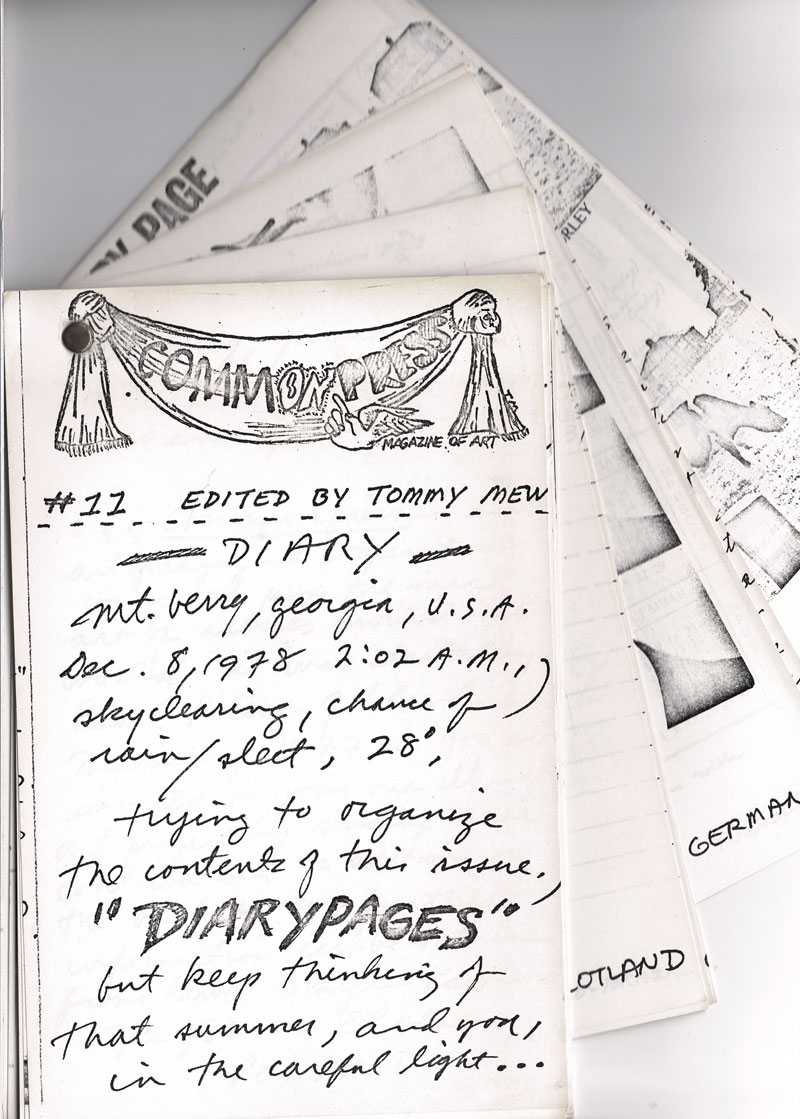 COMMON PRESS
MAGAZINE OF ART
#11 EDITED BY TOMMY MEW
DIARY
mt. berry, georgia, U.S.A.
Dec. 8, 1978 2:02 A.M.,
sky clearing, chance of
rain/sleet, 28°,
trying to organize
the contents of this issue,
"DIARYPAGES"
but keep thinking of
that summer, and you,
in the careful light...
PAGE
RLEY
GERMAN
OTLAND